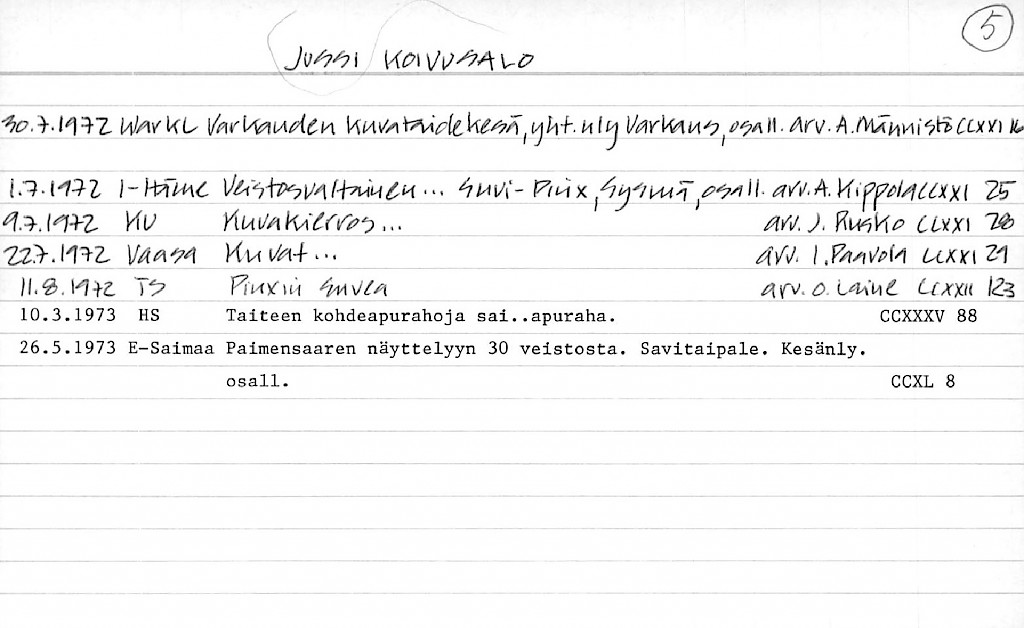 5
JUSSI KOIVUSALO
30.7.1972 WarkL Varkauden Kuvataidekesä, yht.nly Varkaus, osall. arv. A.Männistö CCXXI 16
1.7.1972 I-Häme Veistosvaltainen... Suvi-Pinx, Sysmä, osall. arv.A. Kippola CCXXI 25
9.7.1972 KU Kuvakierros... arv. J. Rusko CCXXI 28
22.7.1972 Vaasa Kuvat... arv. I.Paavola CCXXI 29
11.8.1972 TS Pinxin suvea arv. O. Laine CCXXII 123
10.3.1973 HS Taiteen kohdeapurahoja sai..apuraha. CCXXXV 88
26.5.1973 E-Saimaa Paimensaaren näyttelyyn 30 veistosta. Savitaipale. Kesänly.
osall. CCXL 8